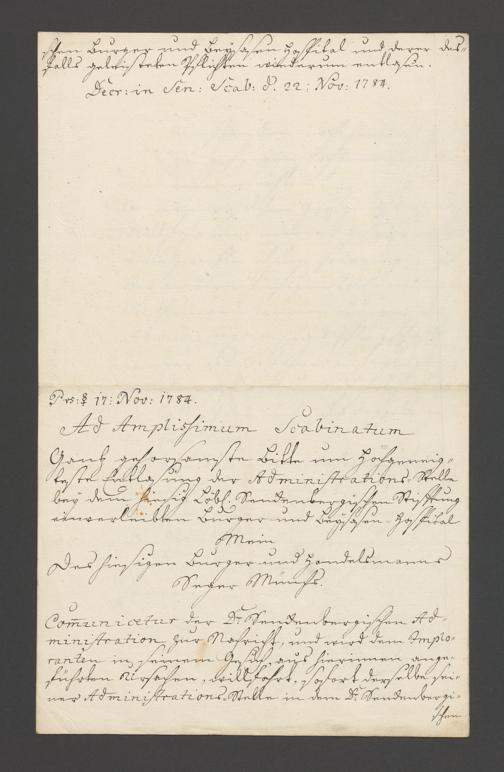 schen Burger und Beysasen Hospital und derer des-
falls geleisteten Pflichten wiederum entlasen.
Decr: in Sen: Scab: d. 22: Nov: 1784.
Prs: 17: Nov: 1784.
Ad Amplissimum Scabinatum
Gantz gehorsamste Bitte um Hochgeneig-
teste Entlasung der Administrations-Stelle
bey dem hiesig Löbl. Senckenbergischen Stifftung
einverleibten Burger und Beysasen-Hospital
Mein
Des hiesigen Burger und Handelsmanns
Seger Münchs.
Com̄unicetur der Dr. Senckenbergischen Ad-
ministration zur Nachricht, und wird dem Implo-
ranten in seinem Gesuch aus hierinnen ange-
führten Ursachen willfahrt, sofort derselbe sei-
ner Administrations-Stelle in dem Dr. Senckenbergi-
schen